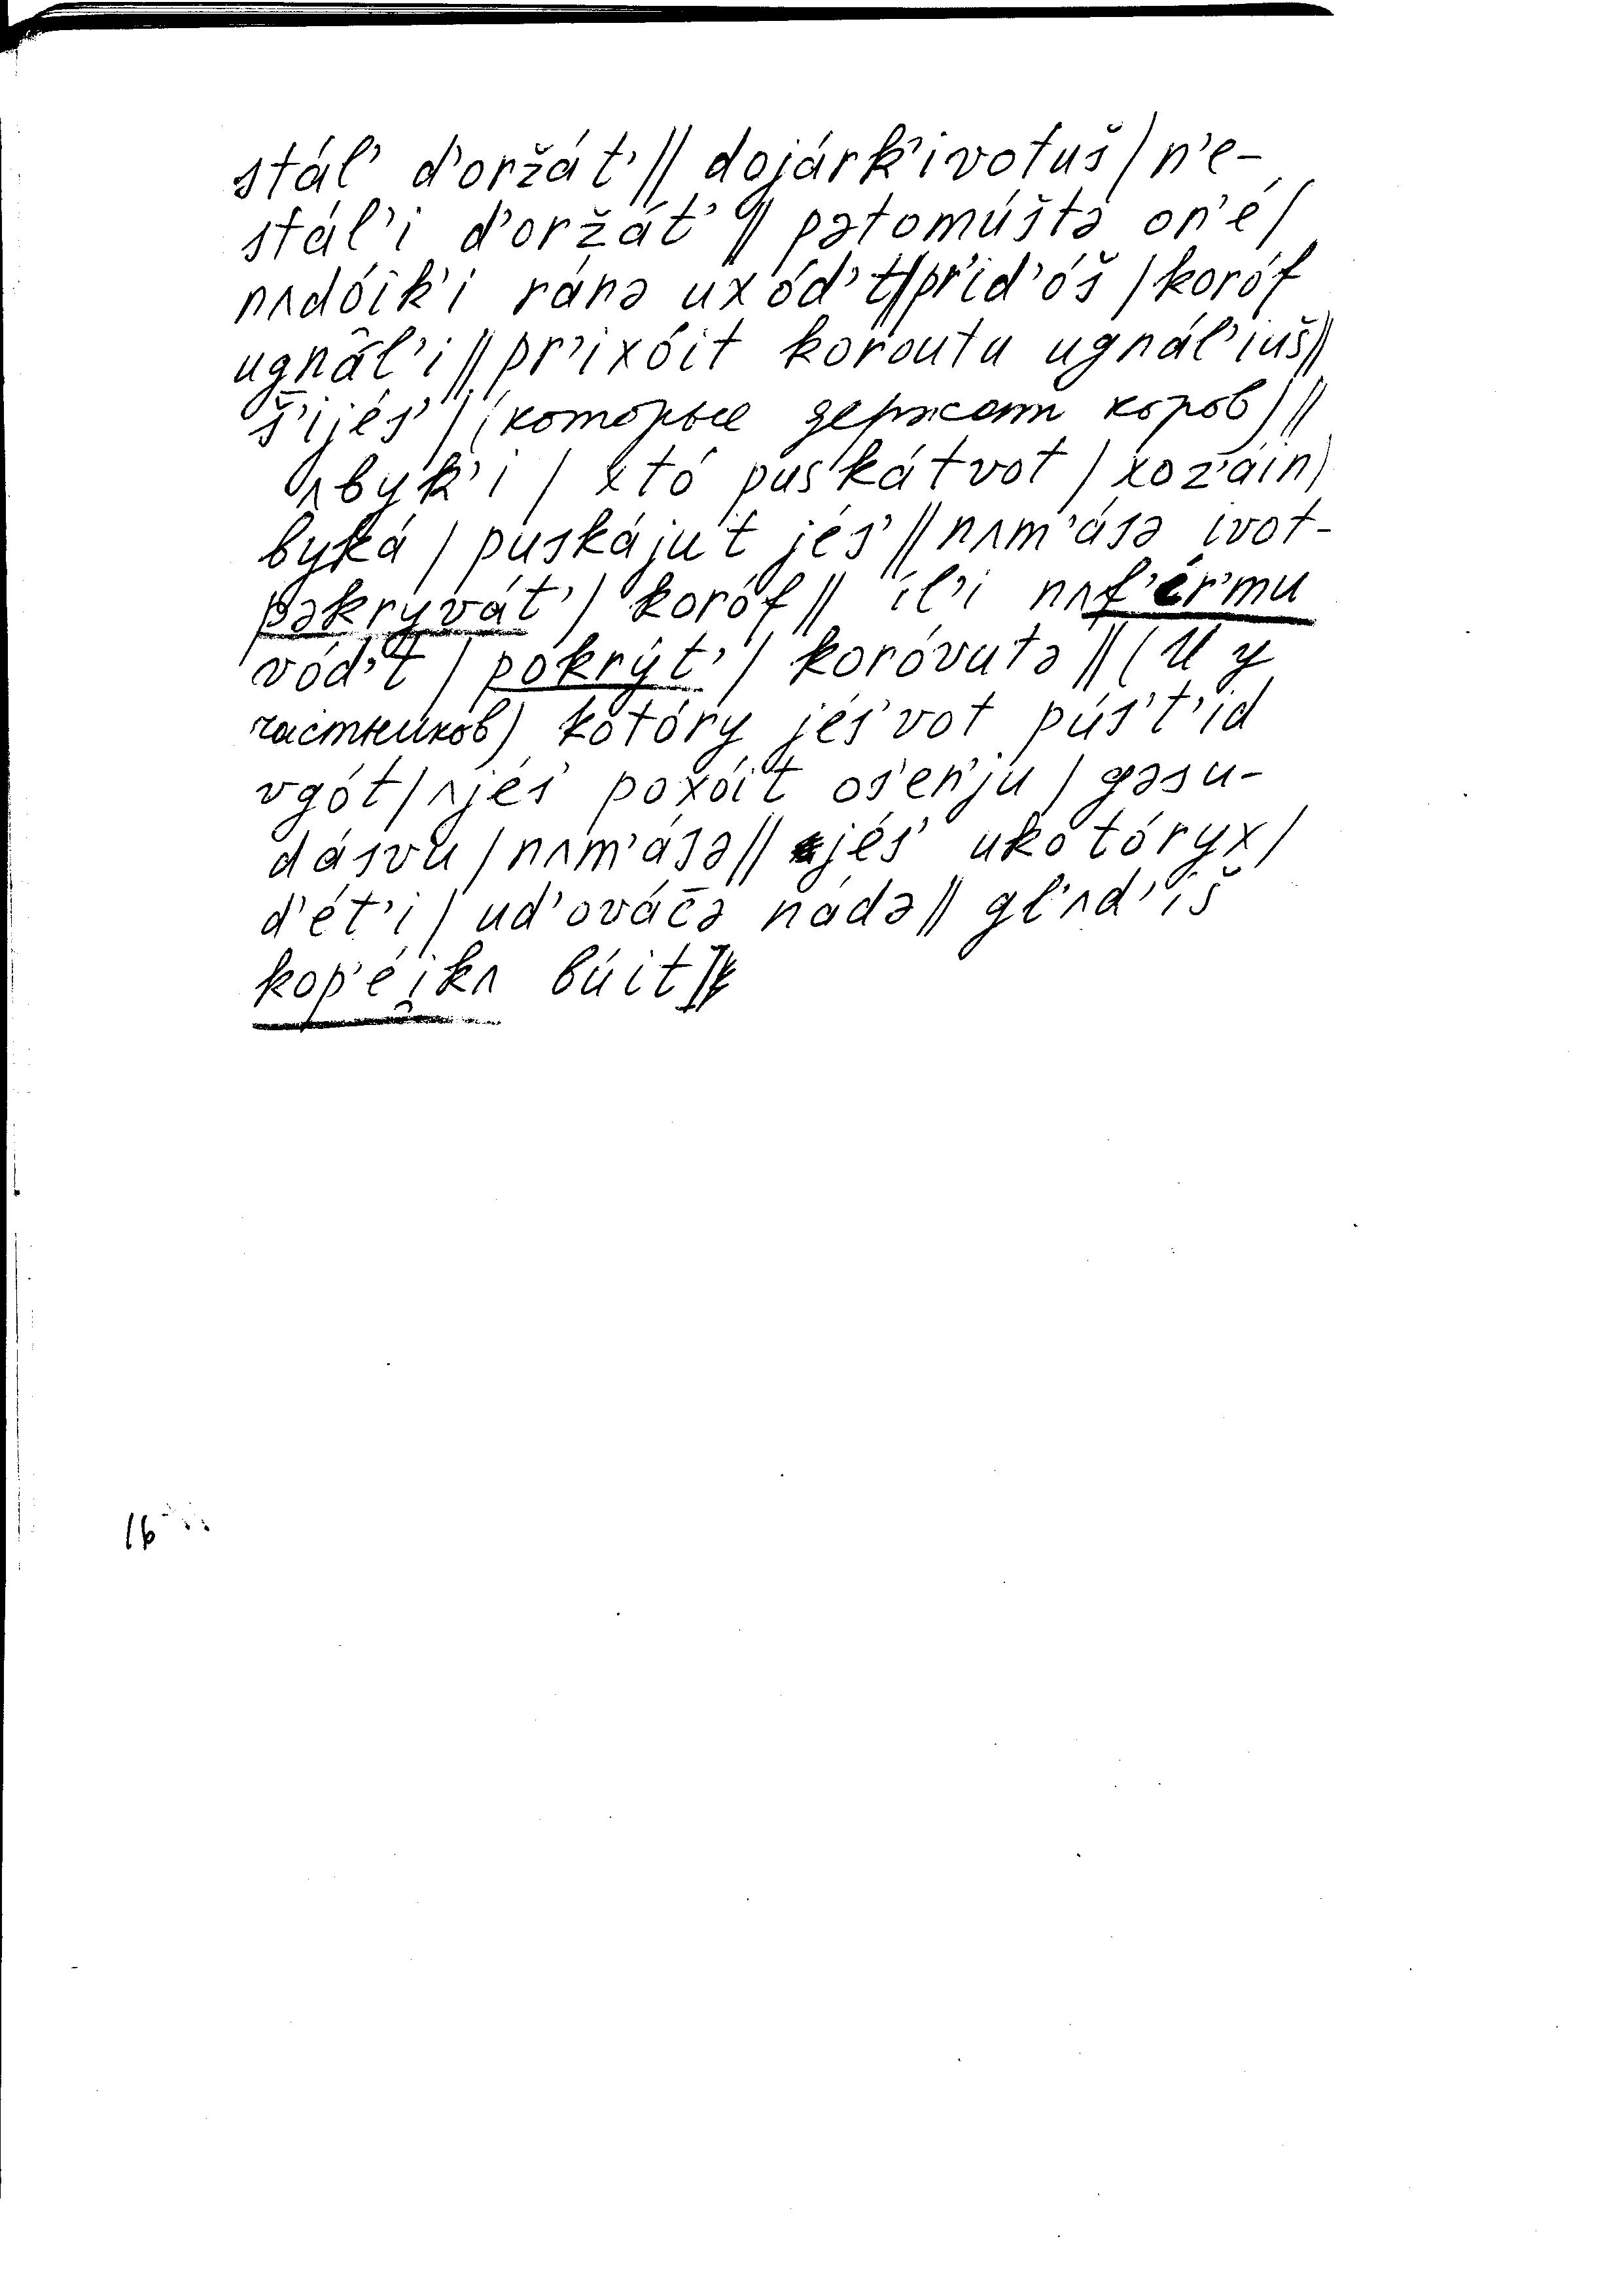 stál’ d’oržát’ || dojárk’ivotuš / n’e-
stál’i d’oržát’ || pətomúštə on’é /
nʌdóik’i ránə uxód’t || pr’id’óš / koróf
ugnál’i || pr’ixóit koroutu ugnál’iuš ||
š’ijés’ / (которые держат коров) ||
ʌbyk’i / xtó puskátvot / xoz’áin /
byká / puskájut jés’ || nʌm’ásə ivot-
pəkryvát’ / koróf || íl’i nʌf’érmu
vód’t / pokrýt’ / koróvutə || (И у
частников) kotóry jés’vot pús’t’id
vgót / ʌjés’ poxóit os’en’ju / gəsu-
dásvu / nʌm’ásə || jés’ ukotóryx /
d’ét’i / ud’ováčə nádə || gl’ʌd’íš
kop’éi̯kʌ búit ||
16